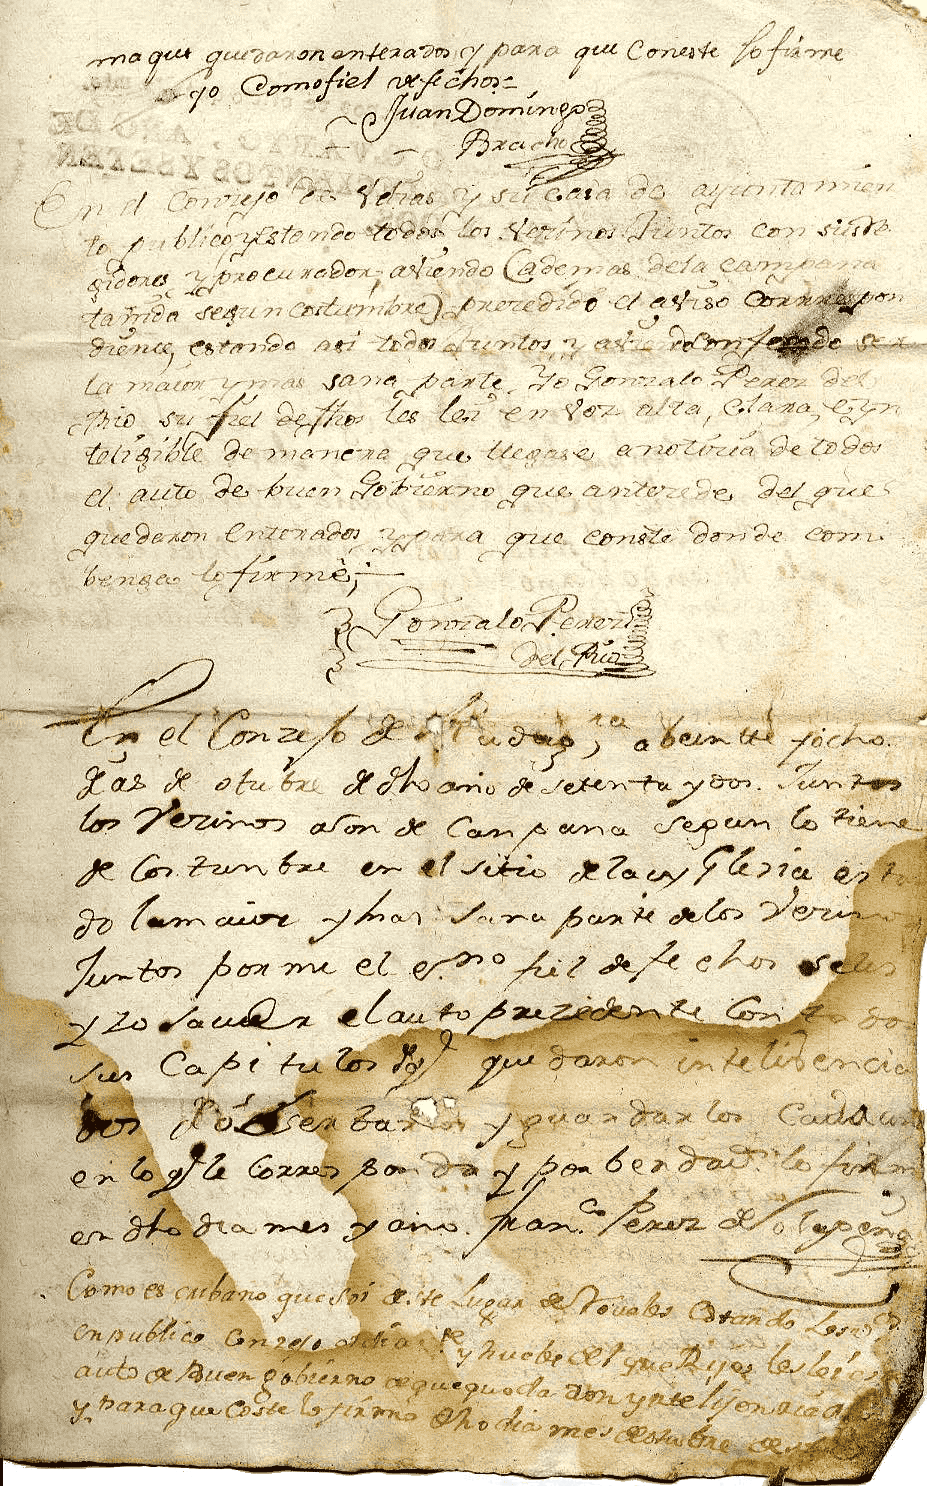 maque quedaron enterados y para que coneste lo firme
yo Como fiel de fechos=
Juan Domingo
Bracho
En el Conzejo de Vdias y su Casa de ayuntamien
to publico y Estando todos los Vecinos Juntos con sus Re
gidores y procurador aviendo (ademas de la campana
tañida segun costumbre) precedido el aviso Corrrespon
diente, estando asi todos Juntos y aviendo Confesado ser
la maior y mas sana parte, Yo Gonzalo Perez del
Rio su fiel de fhos les lei en voz alta, clara, e yn
teligible de manera que llegase a noticia de todos
el auto de buen Gobierno que antecede, del que
quedaron Enterados, y para que conste donde com
benga lo firmé;
Gonzalo Perez
del Rio
En el Conzejo de a beintte y ocho
dias de otubre de dho año de setenta y dos. Juntos
los Vecinos a son de Canpana segun lo tiene
de Costunbre en el sitio de la yGlesia estan
do la maior y mas sana parte de los Vecinos
Juntos por mi el es.no fiel de fechos se les
yzo saver el auto prezedente Con todos
sus Capitulos de q quedaron intelidencia
dos de oserbarlos y guardarlos Cada uno
en lo q le Corresponda y por berdad lo firme
en dho dia mes y año. Fran.co Perez de Tolapeña
Como escribano que soi deste Lugar de Novales Estando Los
en publico Conzejo oi dia y nuebe del que Rijes les lei este
auto de Buen gobierno de que quedaron ynteligenciados
y Para que Coste lo firmo dho dia mes de otubre de